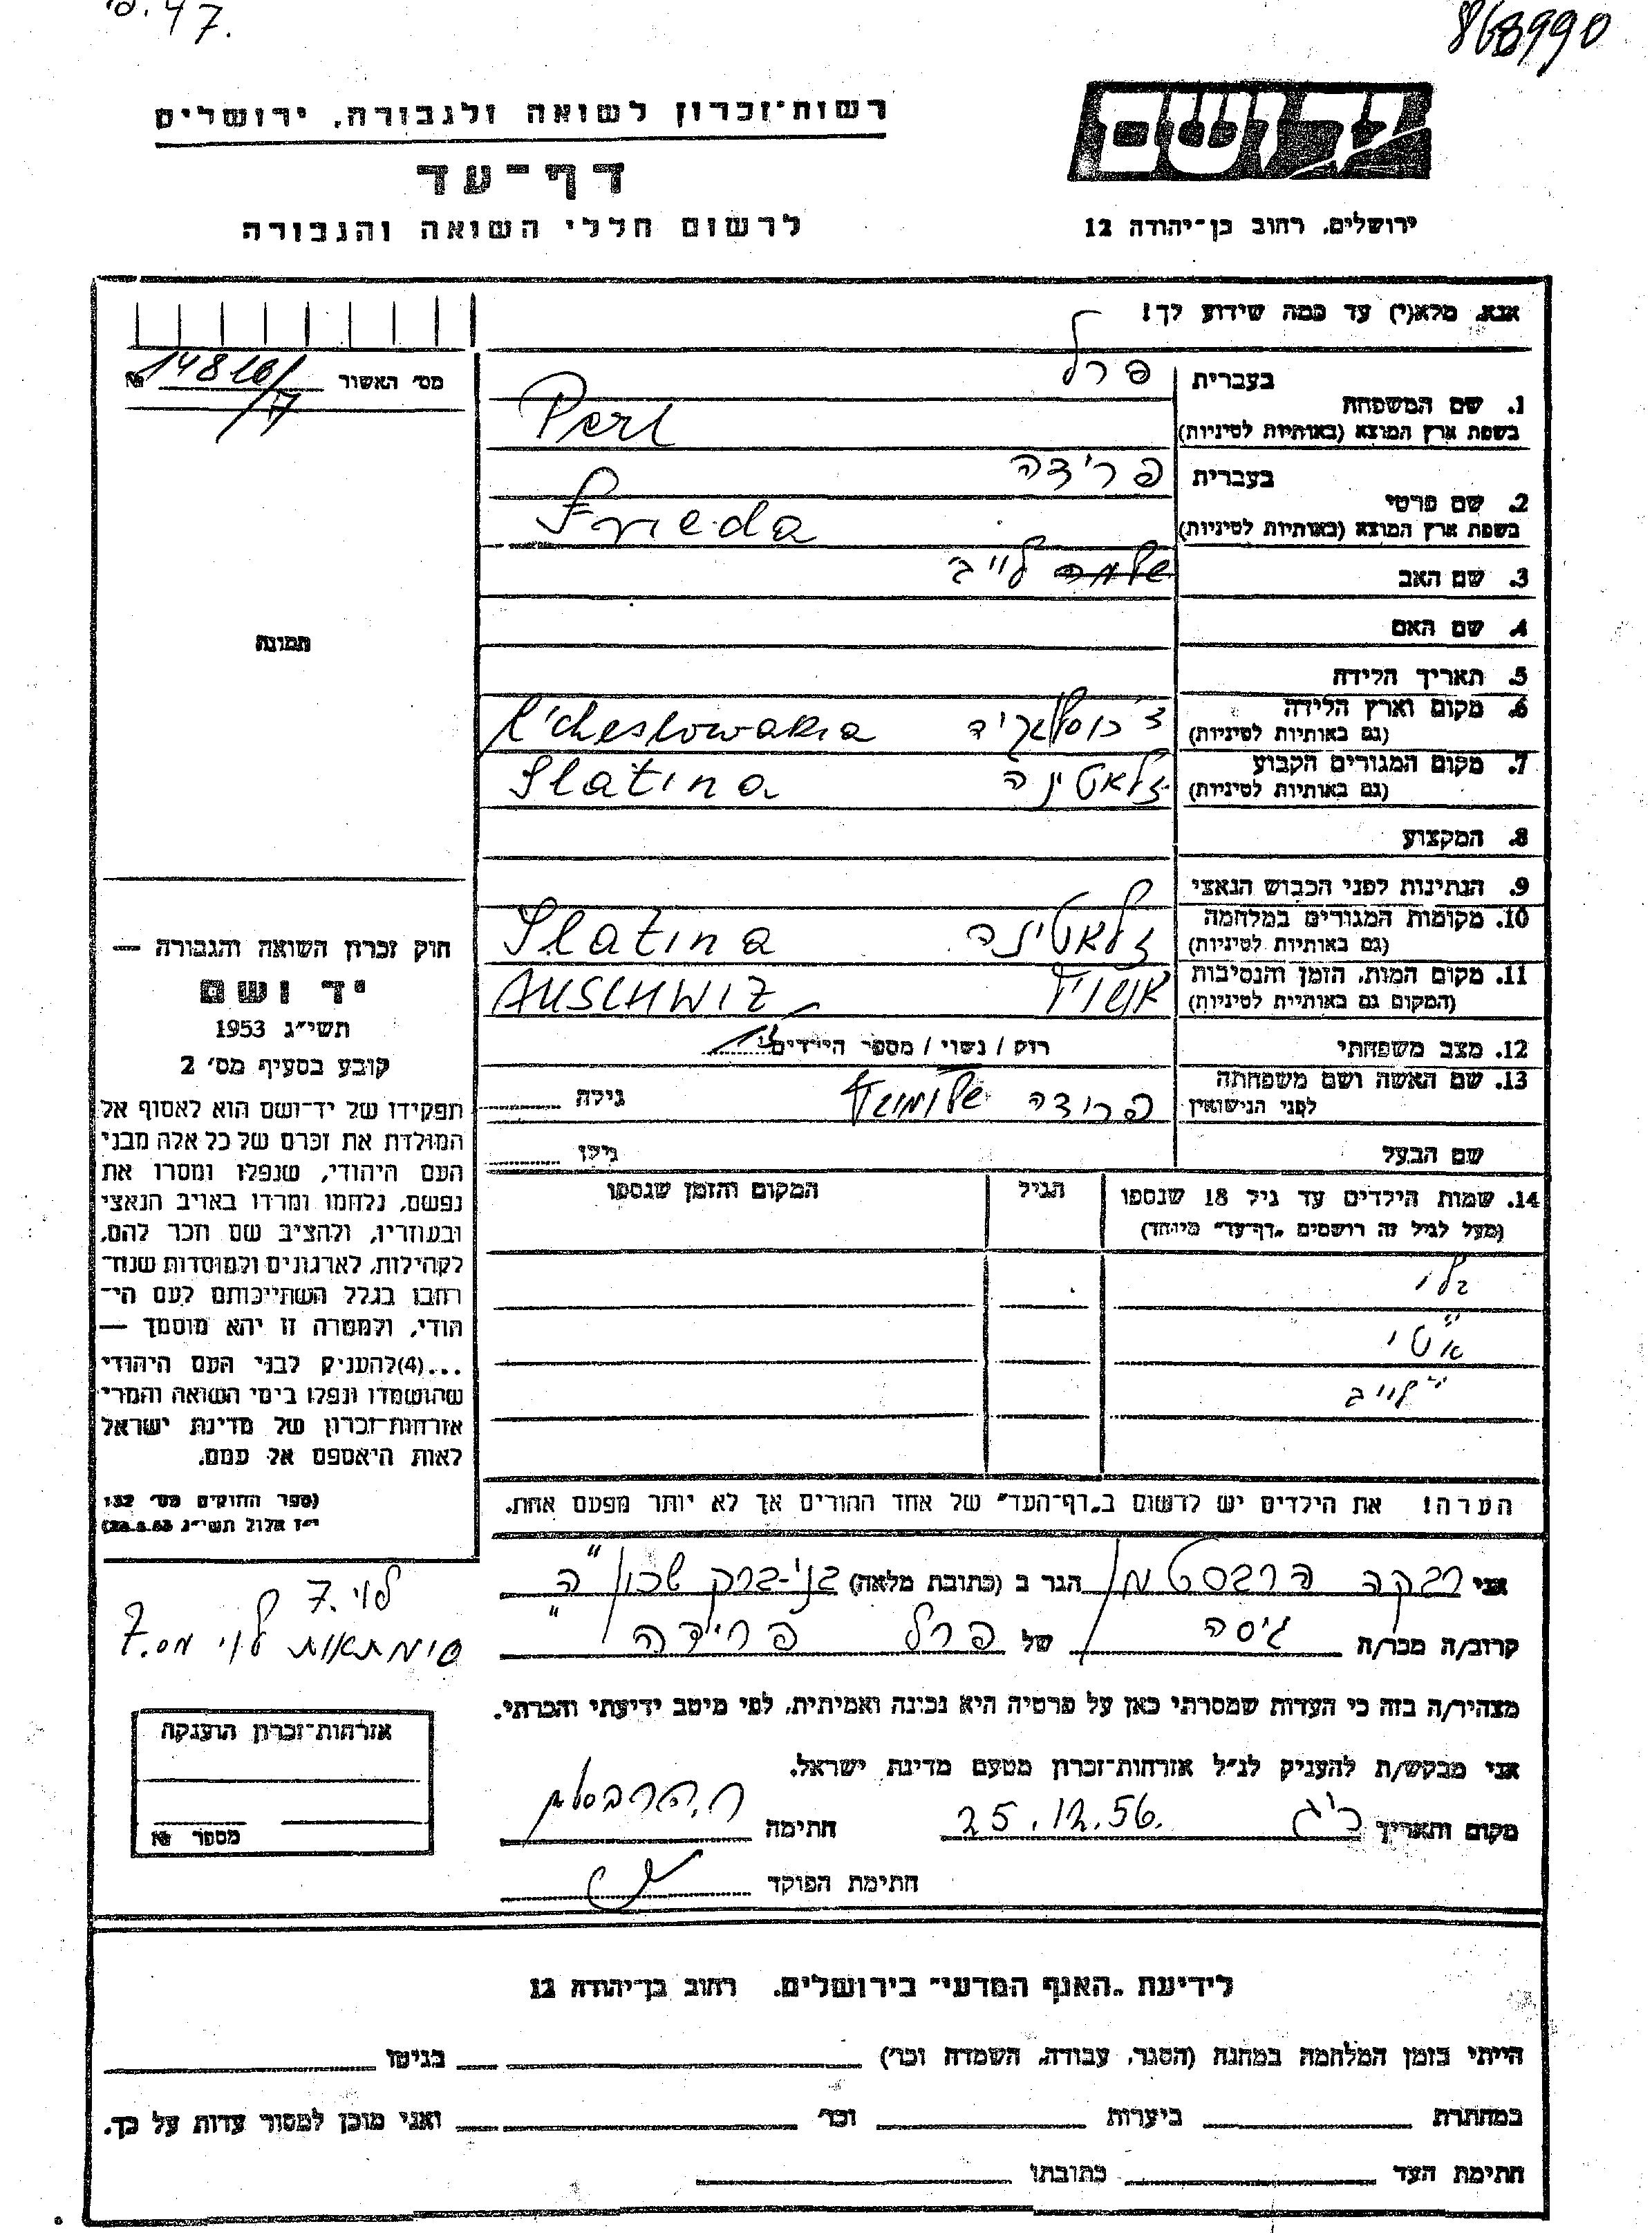 868990
47.
יד ושם
רשות־זכרון לשואה ולגבורה, ירושלים
דף־עד
לרשום חללי השואה והגבורה
ירושלים, רחוב בן־יהודה 12
אנא, מלא(י) עד כמה שידוע לך!
מס׳ האשור № 14816/
1. שם המשפחה בעברית פרל
בשפת ארץ המוצא (באותיות לטיניות) Perl
2. שם פרטי בעברית פרידה
בשפת ארץ המוצא (באותיות לטיניות) Frieda
3. שם האב שלמה לייב
4. שם האם
תמונה
5. תאריך הלידה
6. מקום וארץ הלידה (גם באותיות לטיניות) צ'כוסלואקיה
7. מקום המגורים הקבוע (גם באותיות לטיניות) זלאטינה Slatina
8. המקצוע
9. הנתינות לפני הכבוש הנאצי
10. מקומות המגורים במלחמה (גם באותיות לטיניות) זלאטינה Slatina
11. מקום המות, הזמן והנסיבות (המקום גם באותיות לטיניות) אושויץ AUSCHWIZ
12. מצב משפחתי רוק / נשוי / מספר הילדים
13. שם האשה ושם משפחתה לפני הנישואין פרידה גילה
שם הבעל גילו
14. שמות הילדים עד גיל 18 שנספו
(מעל לגיל זה רושמים „דף־עד״ מיוחד)
הגיל
המקום והזמן שנספו
אטי
לייב
חוק זכרון השואה והגבורה —
יד ושם
תשי״ג 1953
קובע בסעיף מס׳ 2
תפקידו של יד־ושם הוא לאסוף אל
המולדת את זכרם של כל אלה מבני
העם היהודי, שנפלו ומסרו את
נפשם, נלחמו ומרדו באויב הנאצי
ובעוזריו, ולהציב שם וזכר להם,
לקהילות, לארגונים ולמוסדות שנח־
רבו בגלל השתייכותם לעם הי־
הודי, ולמטרה זו יהא מוסמך —
...(4)להעניק לבני העם היהודי
שהושמדו ונפלו בימי השואה והמרי
אזרחות־זכרון של מדינת ישראל
לאות היאספם אל עמם.
(ספר החוקים מס׳ 132
י״ז אלול תשי״ג 28.8.53)
הערה! את הילדים יש לרשום ב„דף־העד״ של אחד ההורים אך לא יותר מפעם אחת.
אני רבקה הרבסטמן הגר ב (כתובת מלאה) בני־ברק שכון ה"
לוי 7.
סימטאות לוי מס. 7
קרוב/ה מכר/ה גיסה של פרל פרידה
מצהיר/ה בזה כי העדות שמסרתי כאן על פרטיה היא נכונה ואמיתית, לפי מיטב ידיעתי והכרתי.
אני מבקש/ת להעניק לנ״ל אזרחות־זכרון מטעם מדינת ישראל.
מקום ותאריך 25.12.56. חתימה
חתימת הפוקד
אזרחות־זכרון הוענקה
מספר №
לידיעת „האגף המדעי״ בירושלים. רחוב בן־יהודה 12
הייתי בזמן המלחמה במחנה (הסגר, עבודה, השמדה וכו׳) בגיטו
במחתרת ביערות וכו׳ ואני מוכן למסור עדות על כך.
חתימת העד כתובתו